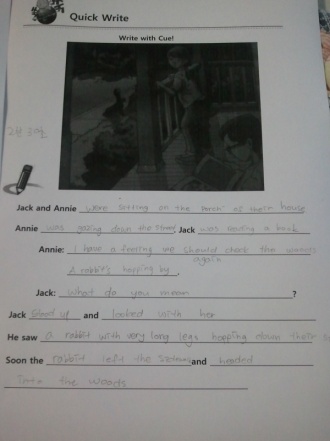 Quick Write
Write with Cue!
2월 30일
Jack and Annie were sitting on the porch of their house
Annie was gazing down the street Jack was reading a book
Annie: I have a feeling we should check the woods
again
A rabbit's hopping by.
Jack: What do you mean ?
Jack stood up and looked with her
He saw a rabbit with very long legs hopping down their
Soon the rabbit left the and headed
into the woods